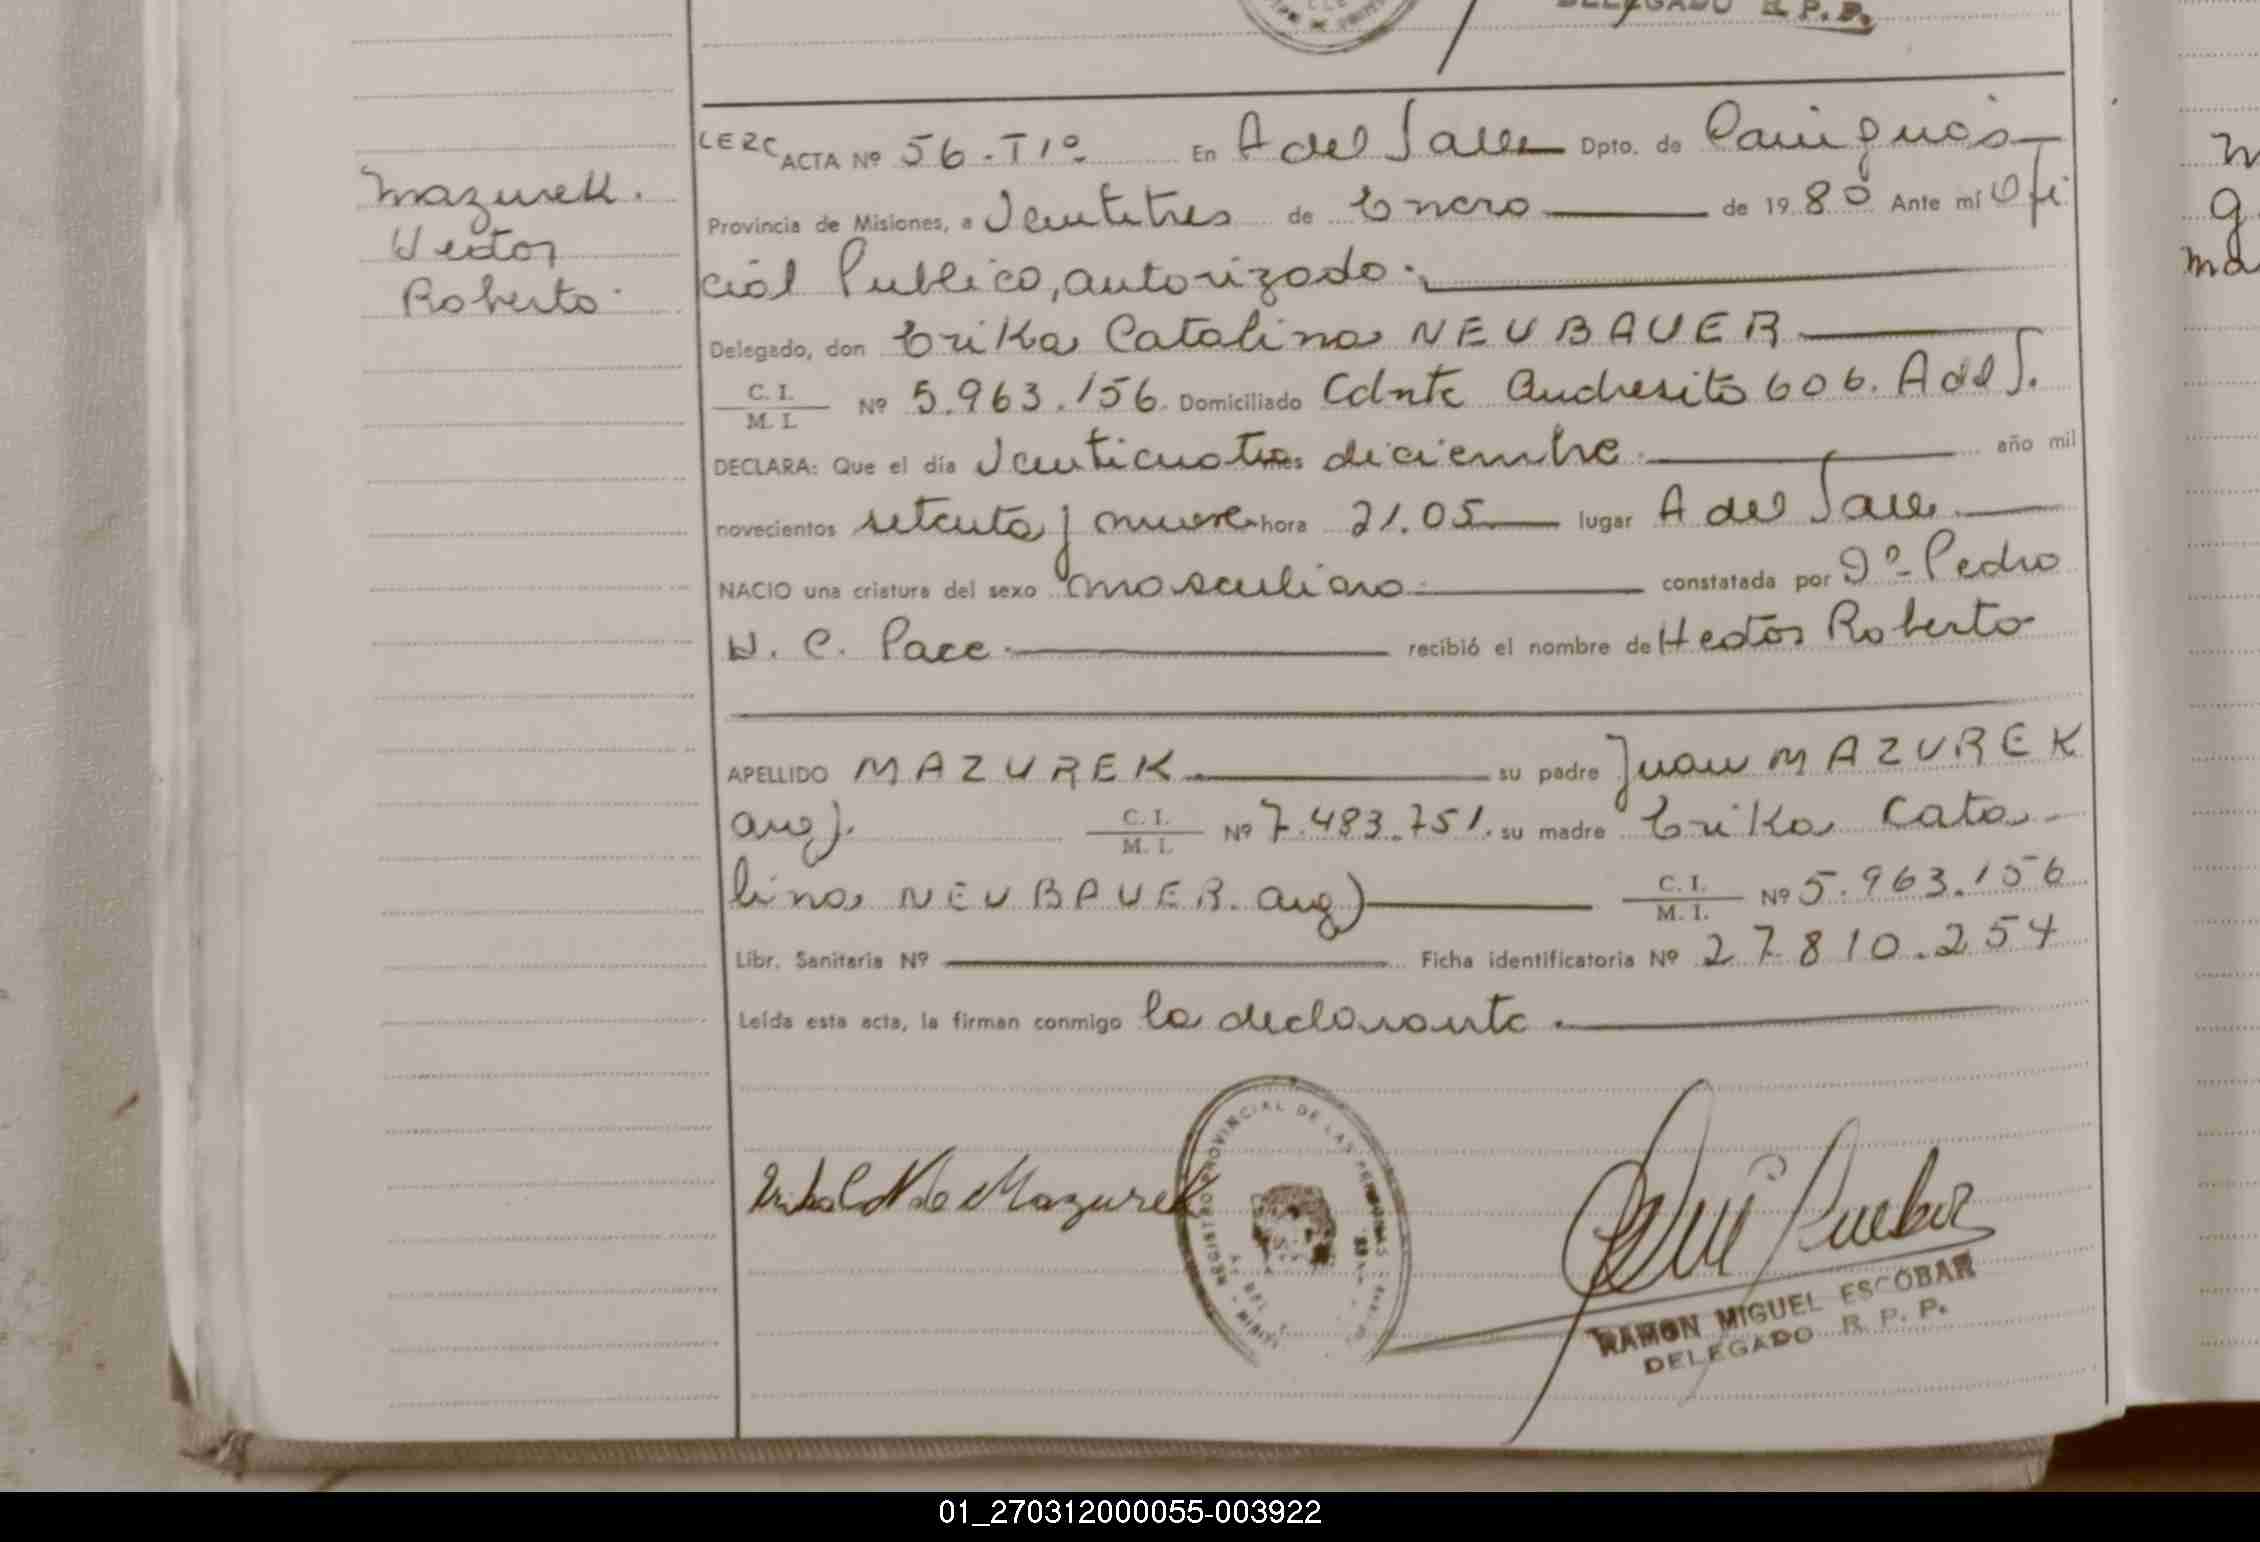 DELEGADO R.P.P.
LERC ACTA Nº 56.Tº1º En A del Valle Dpto. de Cainguás
Mazurek.
Hector
Roberto.
Provincia de Misiones, a Veintitres de Enero de 1980 Ante mí Ofi
cial Publico, autorizado.
Delegado, don Erika Catalina NEUBAUER
C. I. / M. I. Nº 5.963.156. Domiciliado Cdnte Andresito 606. A del V.
DECLARA: Que el día Veinticuatro mes diciembre. año mil
novecientos setenta y nueve hora 21.05 lugar A del Valle
NACIO una criatura del sexo masculino constatada por Dº Pedro
H. C. Pace recibió el nombre de Hector Roberto
APELLIDO MAZUREK su padre Juan MAZUREK
arg). C. I. / M. I. Nº 7.483.751. su madre Erika Cata-
lina NEUBAUER. arg) C. I. / M. I. Nº 5.963.156
Libr. Sanitaria Nº Ficha identificatoria Nº 27.810.254
Leída esta acta, la firman conmigo la declarante.
N de Mazurek
REGISTRO PROVINCIAL DE LAS PERSONAS
RAMON MIGUEL ESCOBAR
DELEGADO R. P. P.
01_270312000055-003922